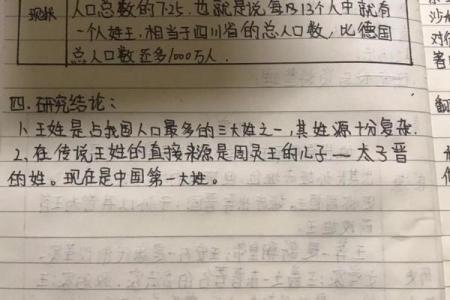 现状 人口总数的7.25.也就是说每13个人中就有
一个人姓王,相当于四川省的总人口数,比德国
总人口数还多1000万人.
四.研究结论:
1、王姓是占我国人口最多的三大姓之一,其姓源十分复杂.
2、在传说王姓的直接来源是周灵王的儿子—太子晋
的姓。现在是中国第一大姓。